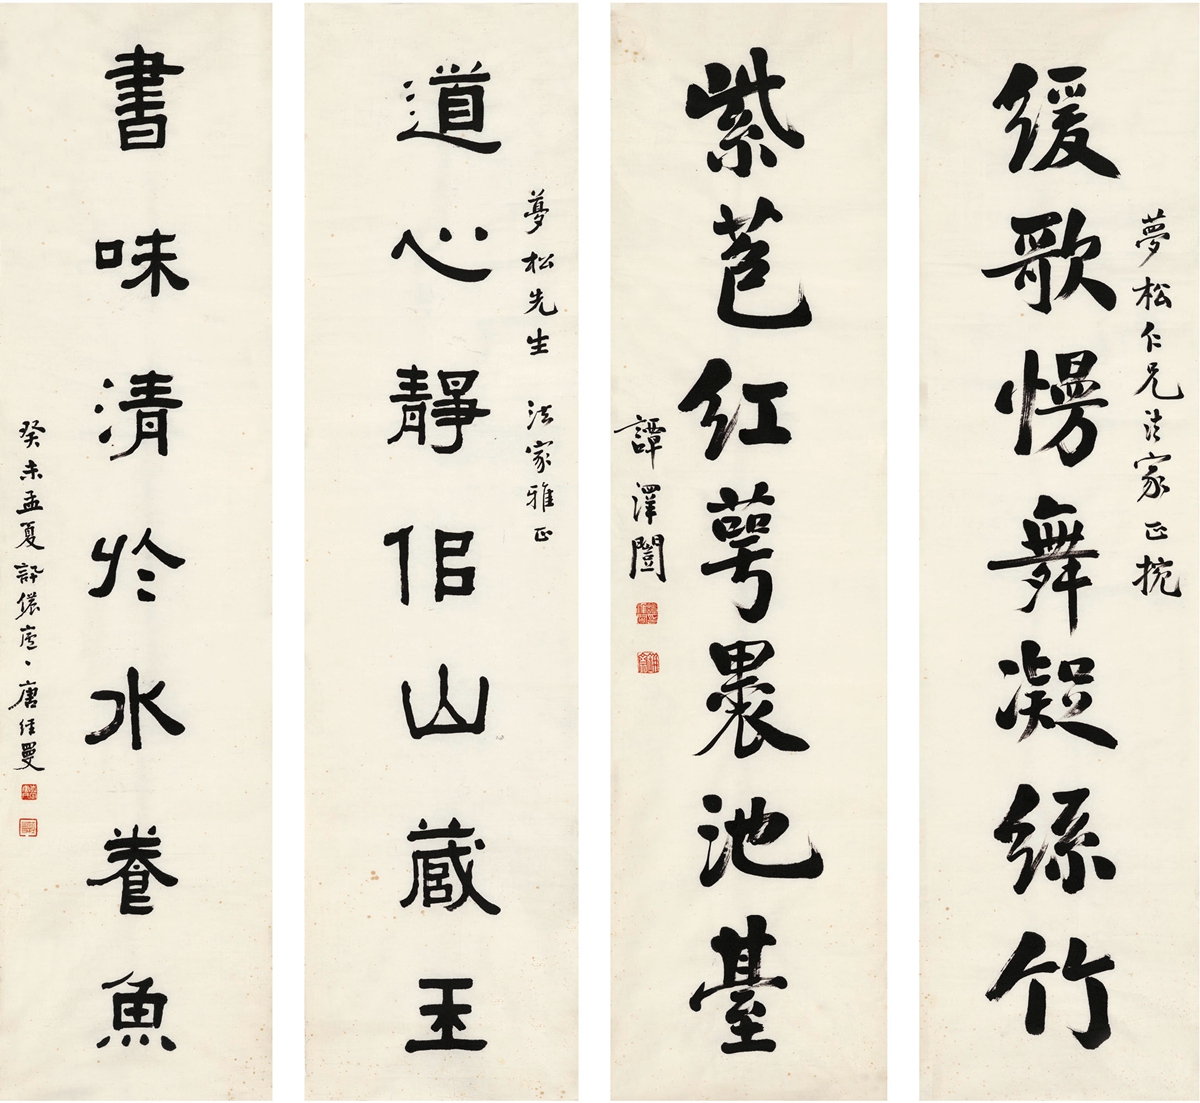 夢松仁兄法家正捥
緩歌慢舞凝絲竹
紫苞紅萼裹池臺
譚澤闓
夢松先生 法家雅正
道心靜佀山藏玉
書味清於水養魚
癸未孟夏 唐